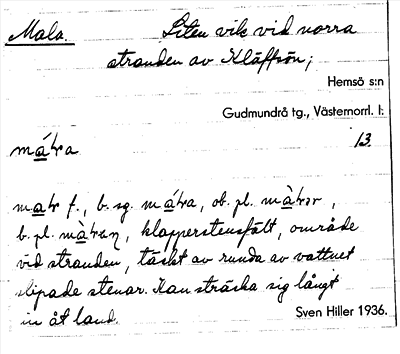 Mala. Liten vik vid norra
stranden av Kläffsön;
Hemsö s:n
Gudmundrå tg., Västernorrl. l:
13.
mátra
matr f., b. sg. mátra, ob. pl. màtrər,
b. pl. màtran, klapperstensfält, område
vid stranden, täckt av runda av vattnet
slipade stenar. Kan sträcka sig långt
in åt land.
Sven Hiller 1936.